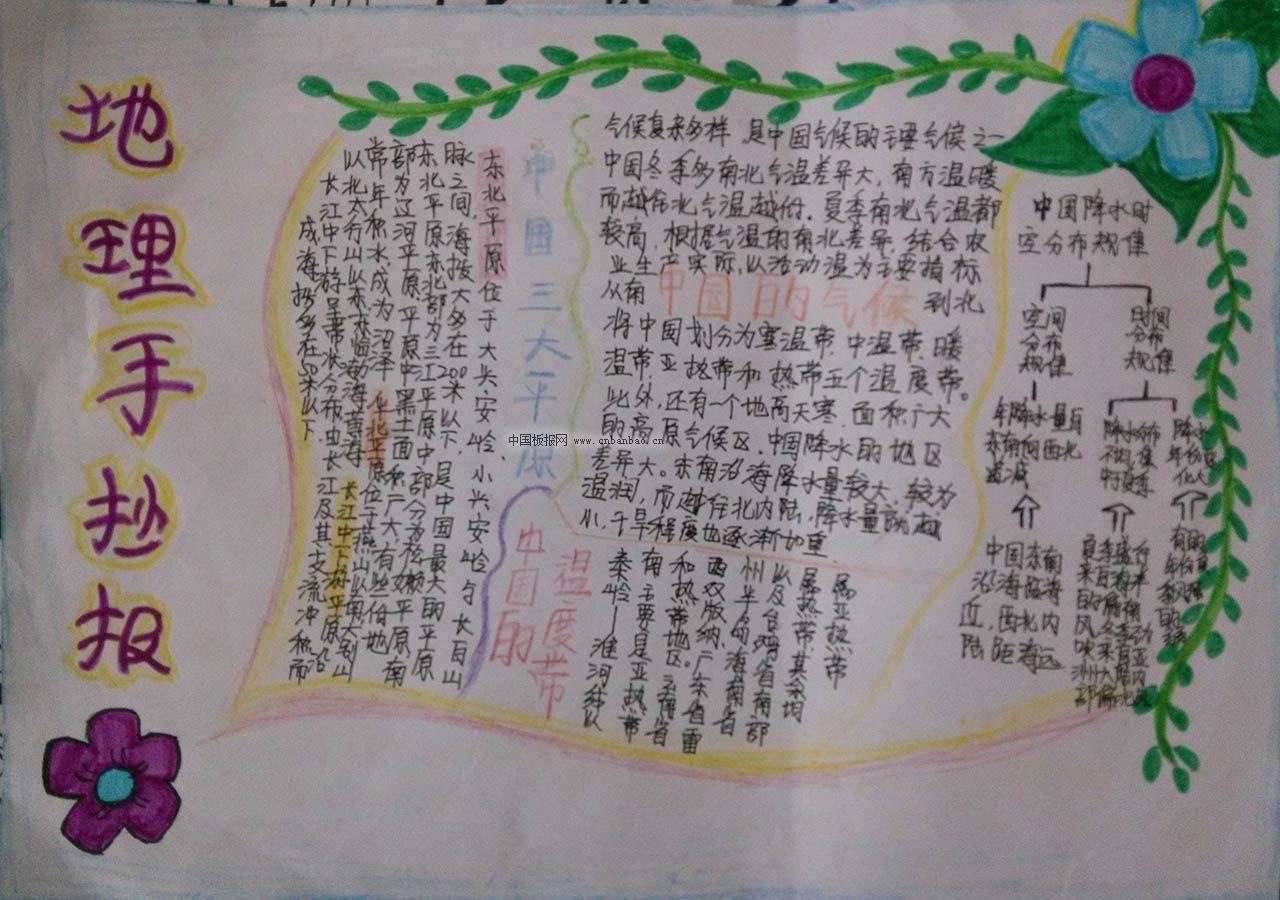 地理手抄报
中国三大平原
东北平原位于大兴安岭、小兴安岭与长白山
脉之间,海拔大多在200米以下,是中国最大的平原
东北平原东北部为三江平原中部分为松嫩平原,南
部为辽河平原,平原中黑土面积广大,有些低地
常年积水,成为沼泽 华北平原位于燕山以南太行山
以北太行山以东东临渤海黄海 长江中下游平原沿
长江中下游呈带状分布,由长江及其支流冲积而
成,海拔多在50米以下.
气候复杂多样 是中国气候的主要气候之一
中国冬季多南北气温差异大,南方温暖
而越往北气温越低.夏季南北气温都
较高.根据气温的南北差异,结合农
业生产实际,以活动温为主要指标
从南
中国的气候
到北
将中国划分为寒温带.中温带.暖
温带.亚热带和热带五个温度带。
此外,还有一个地高天寒.面积广大
的高原气候区.中国降水的地区
差异大。东南沿海降水量较大,较为
温润,而越往北内陆,降水量就越
小,干旱程度也逐渐加重
中国的
温度带
秦岭——淮河线以
南主要是亚热带
和热带地区.云南省
西双版纳.广东省雷
州半岛.海南省
以及台湾省南部
属热带.其余均
属亚热带
中国降水时
空分布规律
空间
分布
规律
时间
分布
规律
年降水量自
东南向西北
递减
中国东南
沿海临海
,西北内
陆,距海远
中国板报网 www.cnbanbao.cn